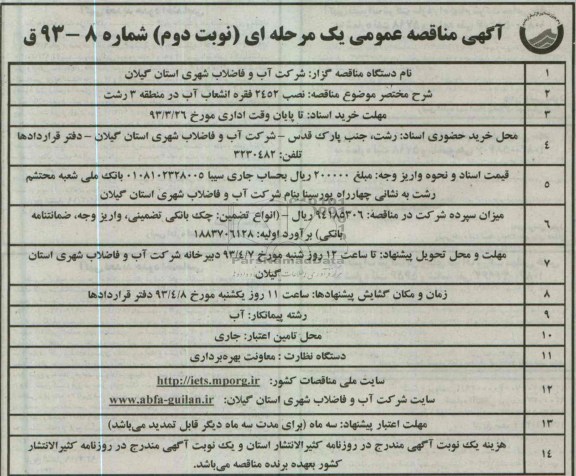 آگهی مناقصه عمومی یک مرحله ای (نوبت دوم) شماره ۸ – ۹۳ ق
۱ نام دستگاه مناقصه گزار: شرکت آب و فاضلاب شهری استان گیلان
۲ شرح مختصر موضوع مناقصه: نصب ۲٤۵۲ فقره انشعاب آب در منطقه ۳ رشت
۳ مهلت خرید اسناد: تا پایان وقت اداری مورخ ۹۳/۳/۲۶
٤ محل خرید حضوری اسناد: رشت، جنب پارک قدس – شرکت آب و فاضلاب شهری استان گیلان – دفتر قراردادها
تلفن: ۳۲۳۰٤۸۲
۵ قیمت اسناد و نحوه واریز وجه: مبلغ ۲۰۰۰۰۰ ریال بحساب جاری سیبا ۰۱۰۸۱۰۲۳۲۸۰۰۵ بانک ملی شعبه محتشم
رشت به نشانی چهارراه پورسینا بنام شرکت آب و فاضلاب شهری استان گیلان
۶ میزان سپرده شرکت در مناقصه: ۹٤۱۸۵۳۰۶ ریال – (انواع تضمین: چک بانکی تضمینی، واریز وجه، ضمانتنامه
بانکی) برآورد اولیه: ۱۸۸۳۷۰۶۱۲۸
۷ مهلت و محل تحویل پیشنهاد: تا ساعت ۱۲ روز شنبه مورخ ۹۳/٤/۷ دبیرخانه شرکت آب و فاضلاب شهری استان
گیلان
۸ زمان و مکان گشایش پیشنهادها: ساعت ۱۱ روز یکشنبه مورخ ۹۳/٤/۸ دفتر قراردادها
۹ رشته پیمانکار: آب
۱۰ محل تامین اعتبار: جاری
۱۱ دستگاه نظارت: معاونت بهره‌برداری
۱۲ سایت ملی مناقصات کشور: http://iets.mporg.ir
سایت شرکت آب و فاضلاب شهری استان گیلان: www.abfa-guilan.ir
۱۳ مهلت اعتبار پیشنهاد: سه ماه (برای مدت سه ماه دیگر قابل تمدید می‌باشد)
۱٤ هزینه یک نوبت آگهی مندرج در روزنامه کثیرالانتشار استان و یک نوبت آگهی مندرج در روزنامه کثیرالانتشار
کشور بعهده برنده مناقصه می‌باشد.